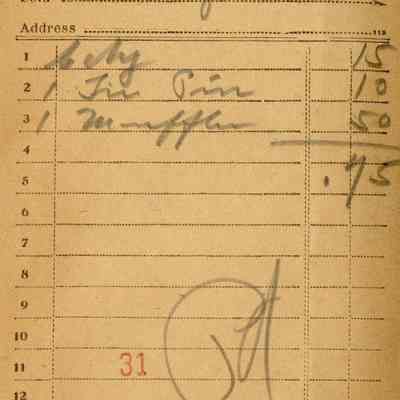 Address
1 15
2 1 Tie Pin 10
3 1 Muffler 50
4
5 .75
6
7
8
9
10
11 31
12